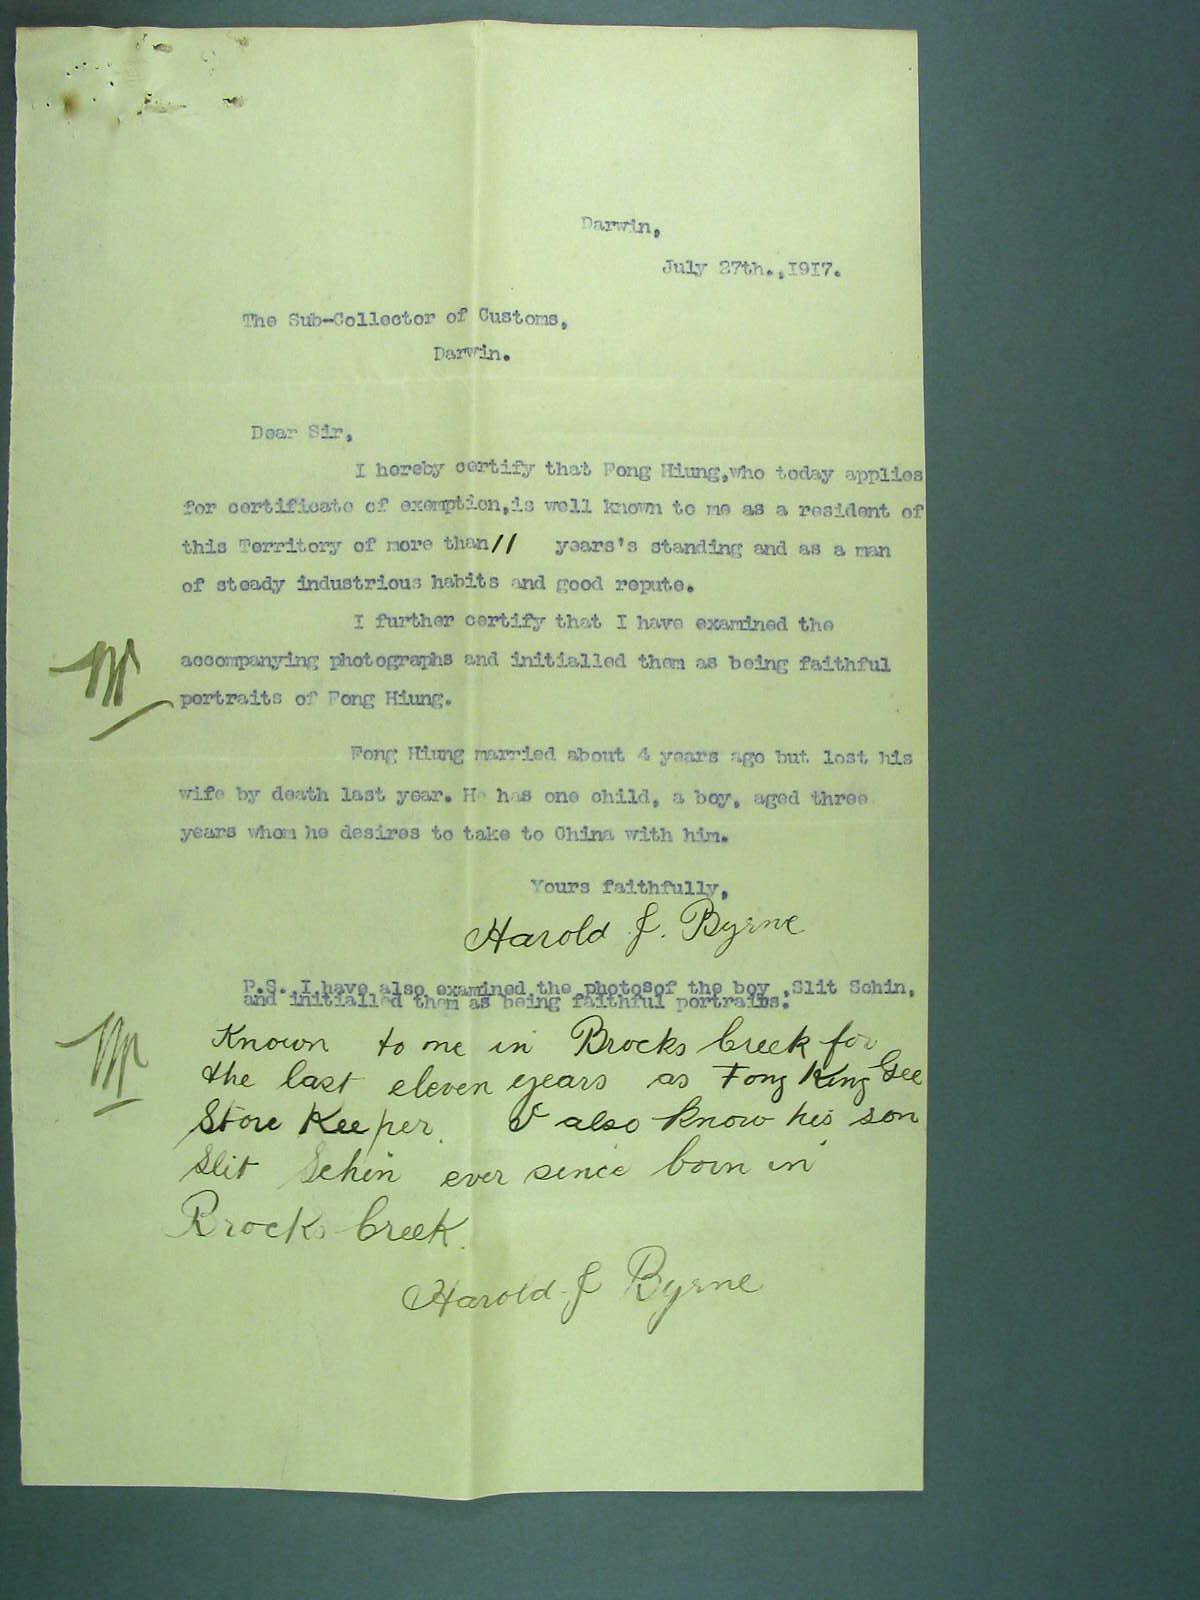 Darwin,
July 27th.,1917.
The Sub-Collector of Customs,
Darwin.
Dear Sir,
I hereby certify that Fong Hiung,who today applies
for certificate of exemption,is well known to me as a resident of
this Territory of more than 11 years's standing and as a man
of steady industrious habits and good repute.
I further certify that I have examined the
accompanying photographs and initialled them as being faithful
portraits of Fong Hiung.
Fong Hiung married about 4 years ago but lost his
wife by death last year. He has one child, a boy, aged three
years whom he desires to take to China with him.
Yours faithfully,
Harold J. Byrne
P.S. I have also examined the photosof the boy ,Slit Schin,
and initialled them as being faithful portraits.
Known to me in Brocks Creek for
the last eleven years as Fong King Gee
Store Keeper. I also know his son
Slit Schin ever since born in
Brocks Creek.
Harold J Byrne